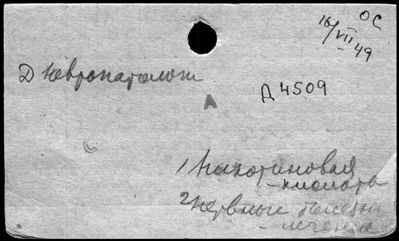 ОС
16/VII-49
Д невропатолог
А
Д 4509
1) Никотиновая
- кислота
2 Нервные болезни
- лечение